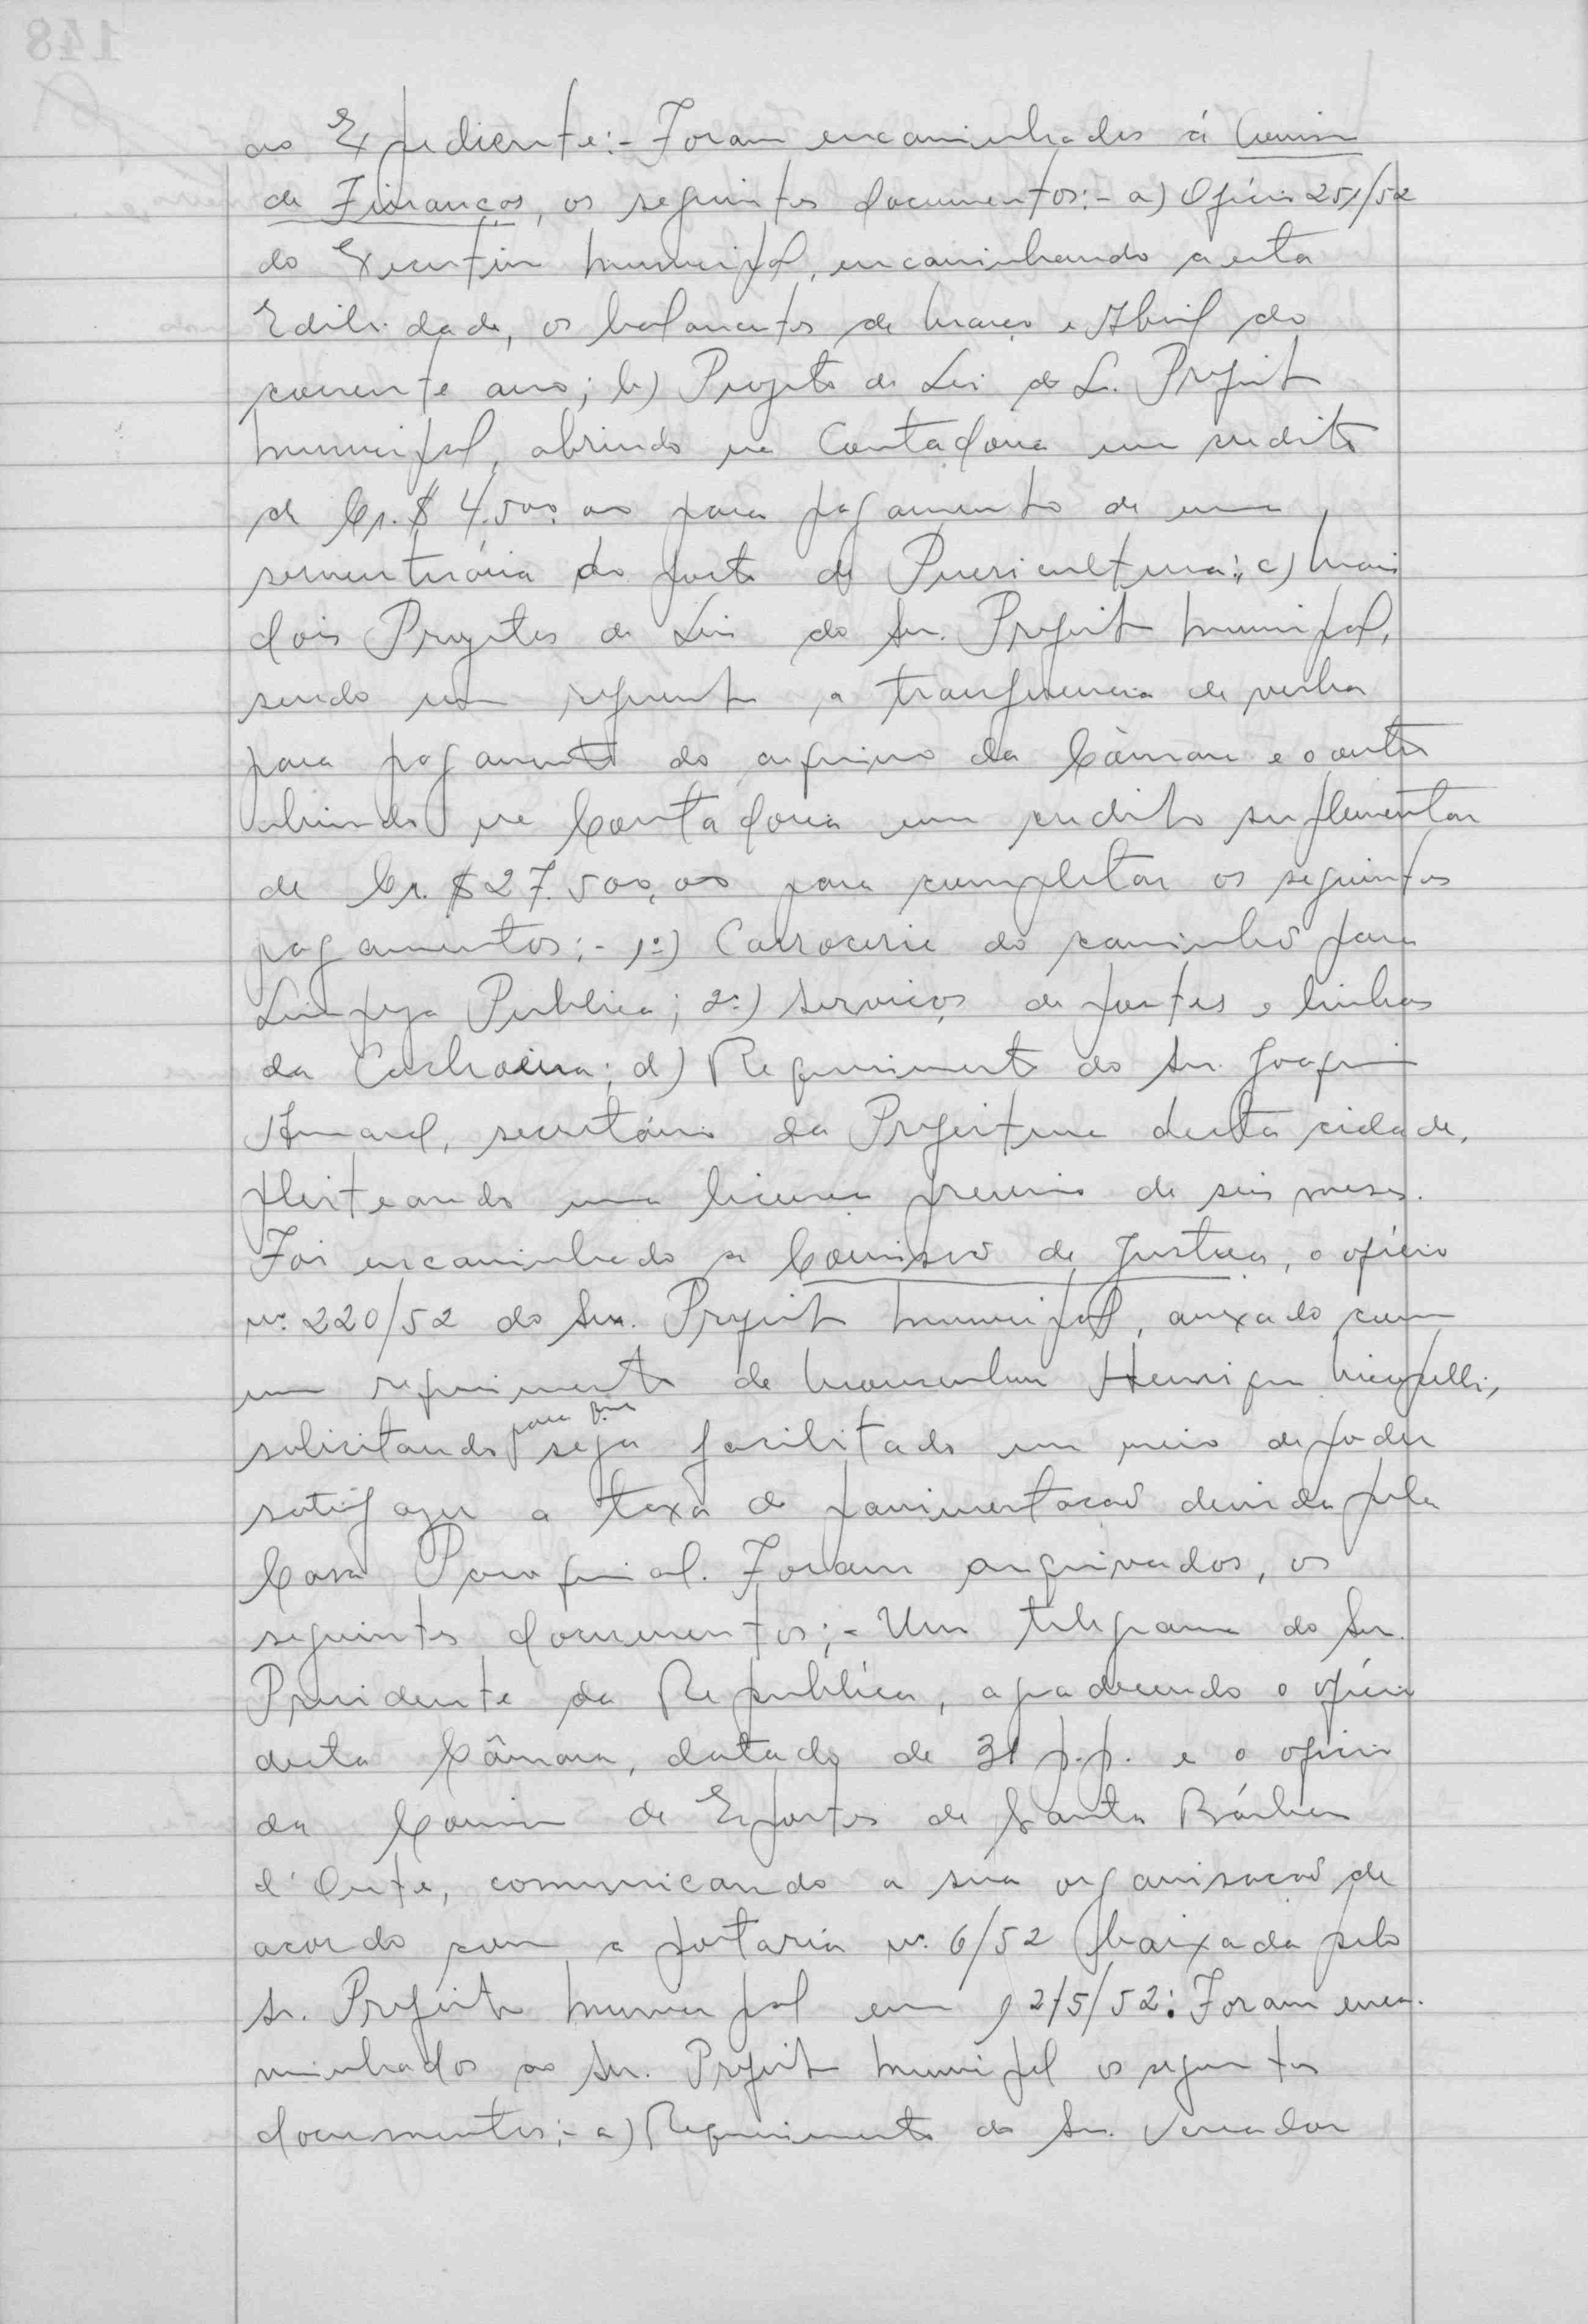 ao Expediente:- Foram encaminhados á Comissão
de Finanças, os seguintes documentos:- a) Ofício 251/52
do Executivo municipal, encaminhando a esta
Edilidade, os balancetes de março e Abril do
corrente ano; b) Projeto de Lei do S. Prefeito
municipal, abrindo na Contadoria um credito
de Cr.$ 4.500,00 para pagamento de uma
serventuária do posto de Puericultura; c) mais
dois Projetos de Leis do Snr. Prefeito municipal,
sendo um referente a transferencia de verba
para pagamento do arquivo da Câmara e o outro
abrindo na Contadoria um credito suplementar
de Cr.$ 27.500,00 para completar os seguintes
pagamentos:- 1º) Carroceria do caminhão para
Limpeza Publica; 2º) serviços de pontes e linhas
da Cachoeira; d) Requerimento do Snr. Joaquim
Amaral, secretário da Prefeitura desta cidade,
pleiteando uma licença premio de seis meses.
Foi encaminhado a Comissão de Justiça, o ofício
nº 220/52 do Snr. Prefeito municipal, anexado com
um requerimento de monsenhor Henrique
solicitando para que seja facilitado um meio de poder
satisfazer a taxa de pavimentação devida pela
Casa Paroquial. Foram arquivados, os
seguintes documentos:- Um telegrama do Snr.
Presidente da Republica, agradecendo o ofício
desta Câmara, datado de 31 p.p. e o ofício
da Comissão de Esportes de Santa Bárbara
d'Oeste, comunicando a sua organisação de
acordo com a portaria nº 6/52 baixada pelo
Sr. Prefeito municipal em 12/5/52: Foram enca-
minhados ao Snr. Prefeito municipal os seguintes
documentos:- a) Requerimento do Snr. Vereador
148